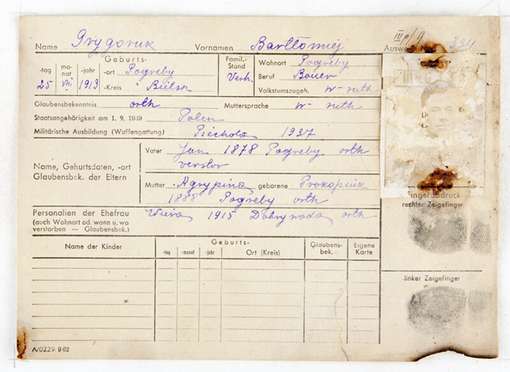 Name Grygoruk Vornamen Bartłomiej Ausw
Geburts- Famil.-Stand Wohnort Pogreby
-tag mo-nat -jahr -ort Pogreby Beruf Bauer
25 VII 1913 -Kreis Bielsk Verh. Volkstumszugeh. w-ruth
Glaubensbekenntnis orth Muttersprache w-ruth
Staatsangehörigkeit am 1. 9. 1939 Polen
Militärische Ausbildung (Waffengattung) 1937
Name, Geburtsdaten, -ort
Glaubensbek. der Eltern
Vater Jan 1878 Pogreby orth
verstor
Mutter Agrypina geborene Prokopiuk
1885 Pogreby orth
Personalien der Ehefrau Wiera 1915 orth
(auch Wohnort od. wann u. wo
verstorben — Glaubensbek.)
Fingerabdruck
rechter Zeigefinger
linker Zeigefinger
Name der Kinder Geburts- Glaubens-bek. Eigene Karte
-tag -monat -jahr Ort (Kreis)